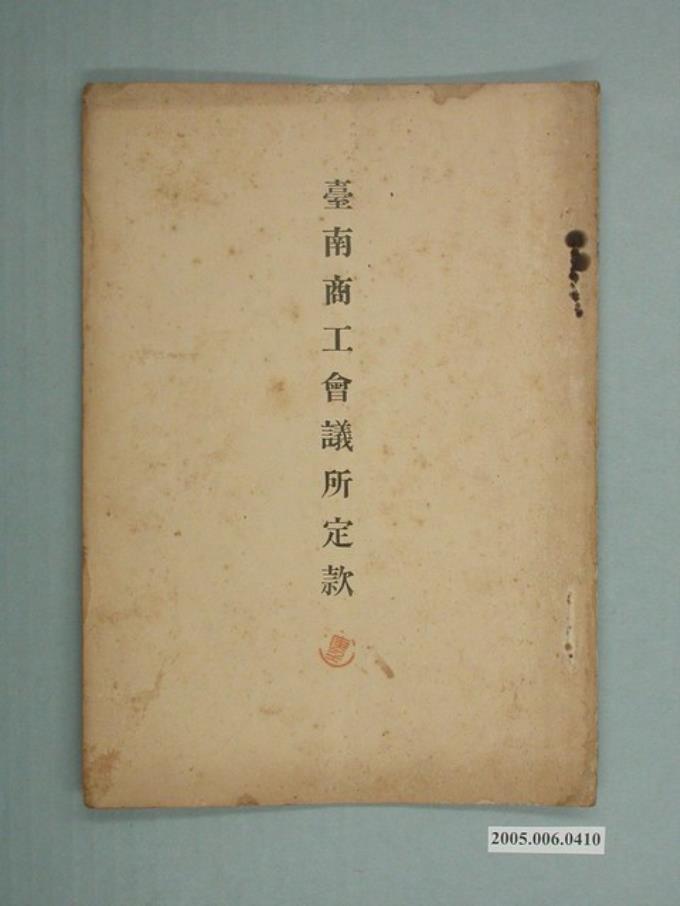 臺南商工會議所定款
2005.006.0410